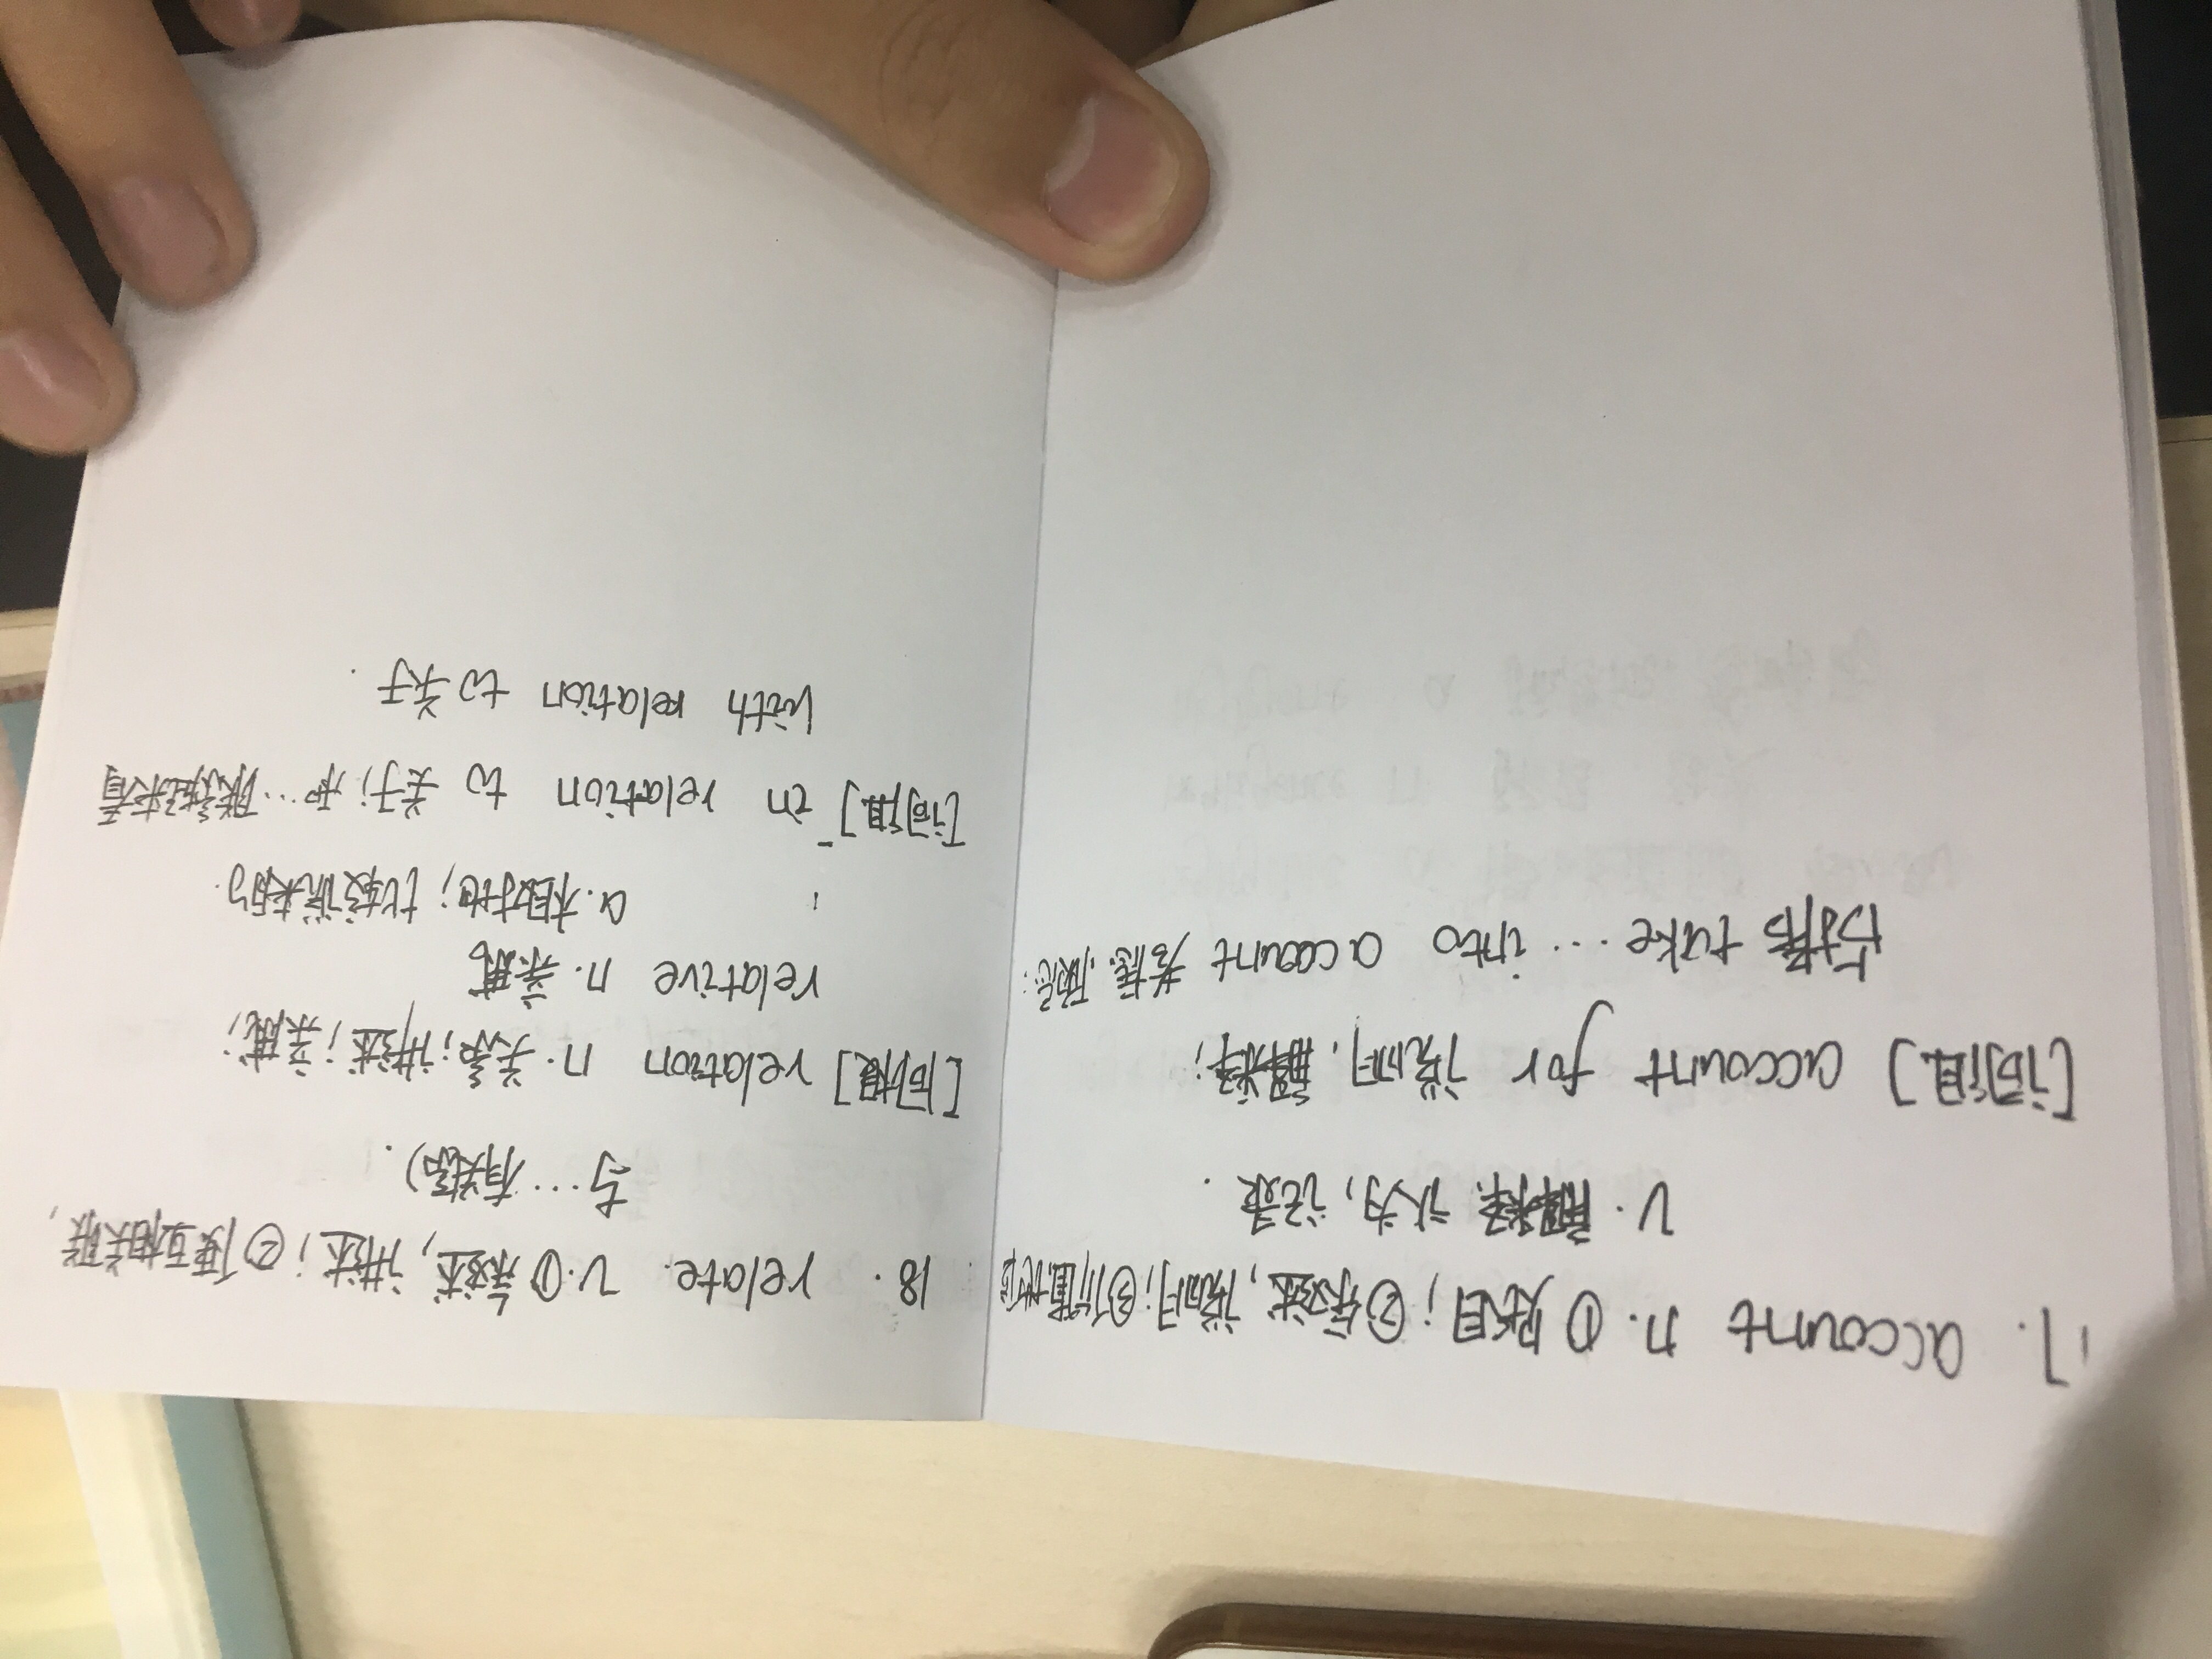 17. account n. ①账目; ②叙述, 说明; ③价值地位
v. 解释, 认为, 记录.
[词组] account for 说明, 解释;
take ... into account 考虑, 顾虑.
18. relate v. ①叙述, 讲述; ②使互相关联,
与...有关系).
[同根] relation n. 关系; 讲述; 亲戚;
relative n. 亲属
a. 相对地; 比较说来的.
[词组] in relation to 关于; 来看
with relation to 关于.